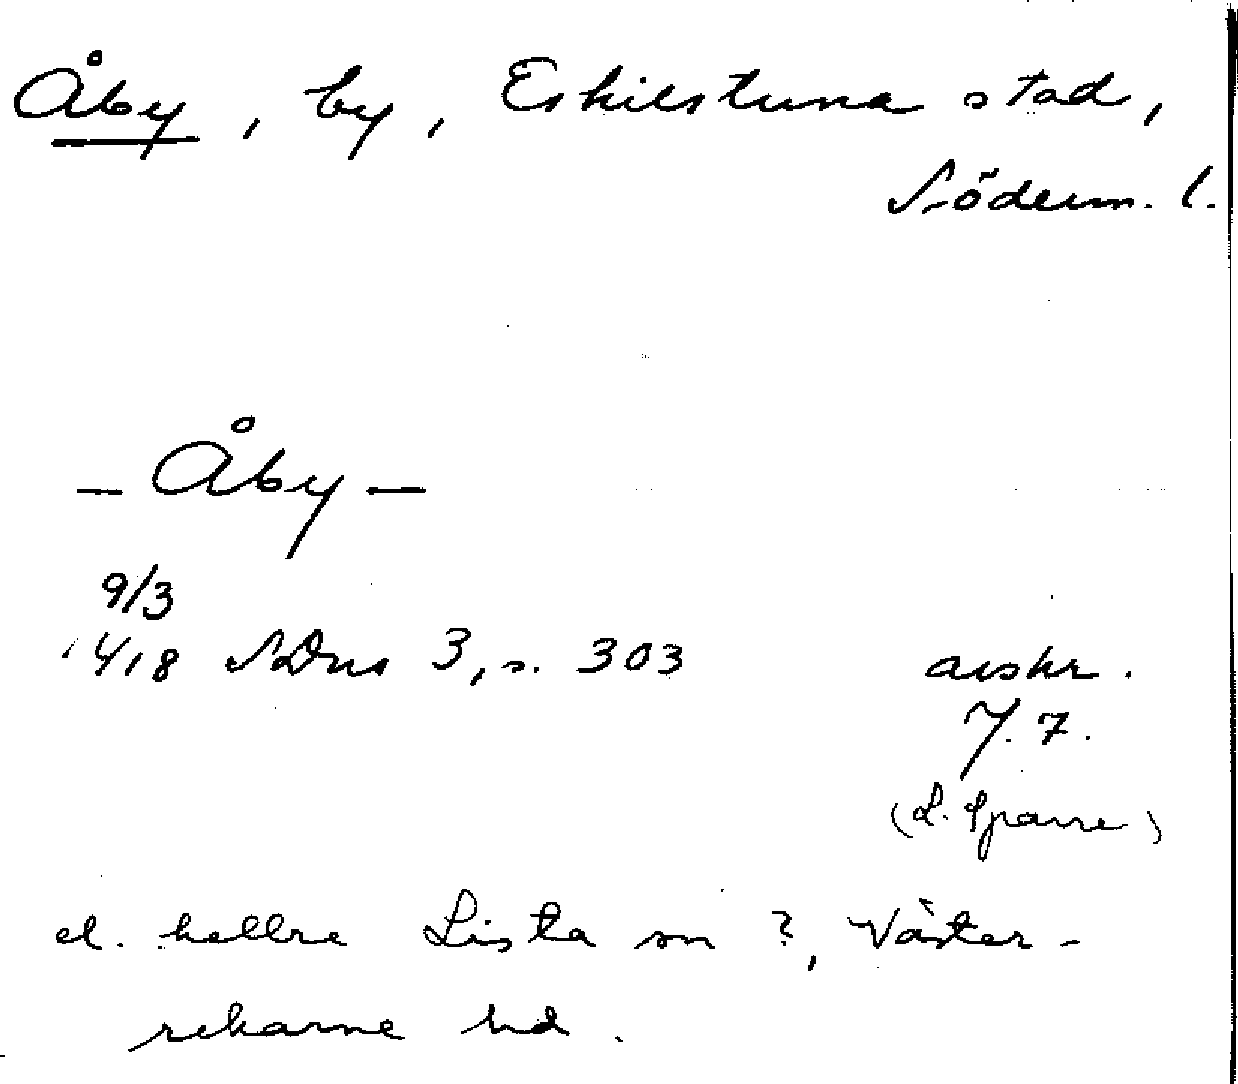 Åby, by, Eskilstuna stad,
Söderm. l.
– Åby –
9/3
1418 SDns 3, s. 303 avskr.
J. 7.
(L. Sparre)
el. hellre Lista sn ?, Väster-
rekarne hd.